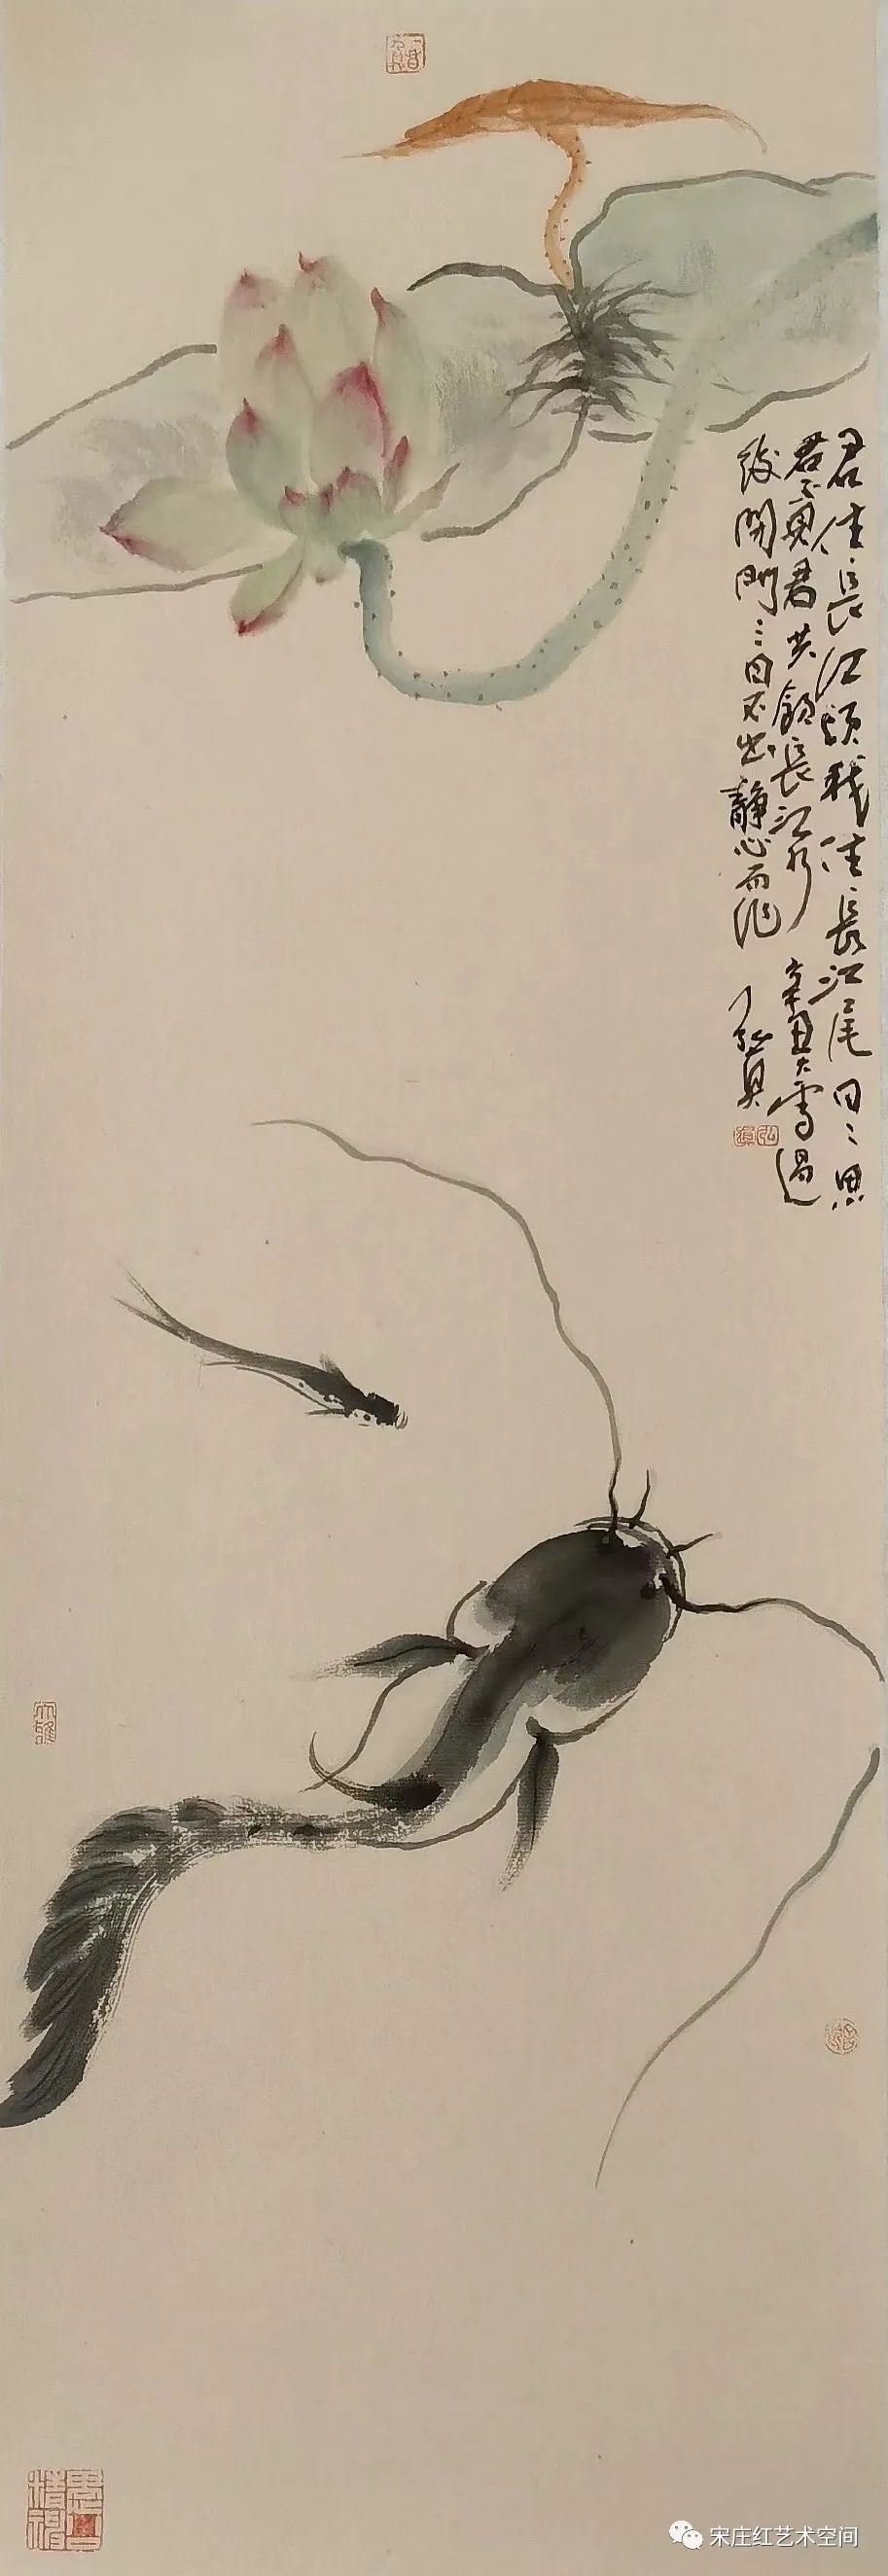 君住長江頭我住長江尾日〻思
君不見君共飲長江水 辛丑大雪過
後閉門三日不出靜心而作
大雅
宋庄红艺术空间